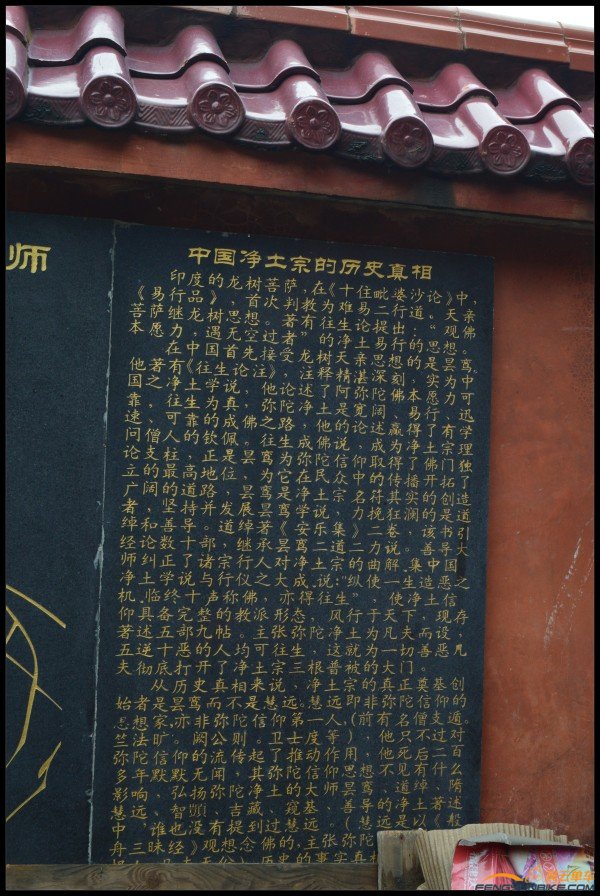 师
中国净土宗的历史真相
印度的龙树菩萨，在《十住毗婆沙论》中，
《易行品》，首次判教为难易二行道。天亲
菩萨继龙树思想。著有往生论二提出：“观想佛
本愿力，遇无空过者”的净土易行的思想。
在中国首先接受龙树天亲思想的是昙鸾。
他著有《往生论注》，注释精湛深刻，实为中
国之净土学说，他论述了阿弥陀佛本愿力可
靠，往生为真，弥陀净土是宽阔、易行、迅
速、可靠的成佛之路，他的论述赢得了有学
问僧人的钦佩。往生成佛说，成为净土宗理
论支柱，正是昙鸾为弥陀信仰取得了佛门独
立的最高地位，为它在民众中传播开拓了
广阔的道路，昙鸾是净土宗名符其实的创造
者，坚持并发展昙鸾学说，力挽狂澜的是道
绰和善导。道绰著《安乐集》二卷，该书引
经论数十部，继承昙鸾二道二力说。善导大
师纠正了诸宗行人对净土宗的曲解，集中国
净土学说与行仪之大成，说：“纵使一生造恶之
机，临终十声称佛，亦得往生”，使净土信
仰具备完整的教派形态，风行于天下，现存
著述五部九帖。主张弥陀净土为凡夫而设，
五逆十恶的人均可往生，这就为一切善恶凡
夫彻底打开了净土宗三根普被的大门。
从历史真相来说，净土宗的真正奠基创
始者是昙鸾而不是慧远。慧远即非弥陀信仰的
思想家，亦非弥陀信仰第一人，（前有名僧支遁。
竺法旷。阙公则。卫士度等），他只不过对
弥陀信仰的流传起了推动作用，他死后二百
多年默默无闻，其弥陀信仰思想不见有什么
影响、弘扬弥陀净土的大师昙鸾、道绰、隋
慧远、智顗、吉藏、窥基、善导的净土著述
中，谁也没有提到过慧远。（慧远是以《般
舟三昧经》观想念佛的，主张弥陀
历史的事实真相